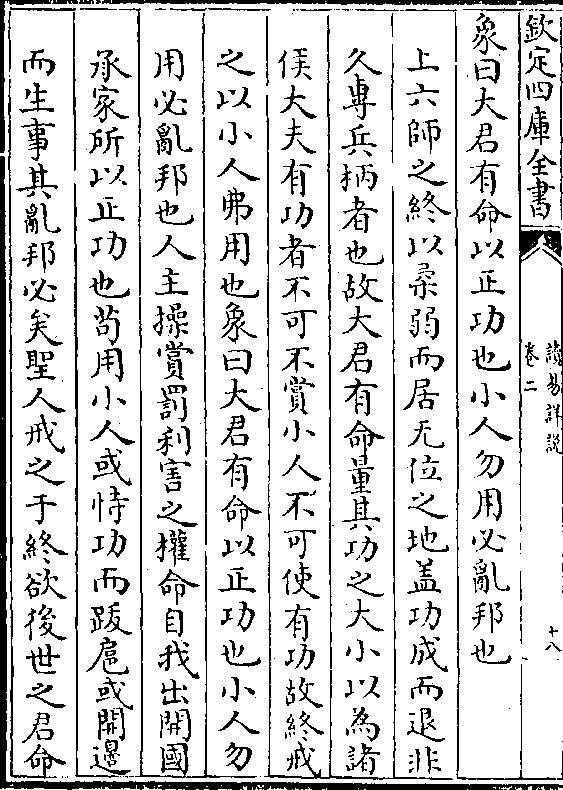 欽定四庫全書
讀易詳說
卷二
十八
象曰大君有命以正功也小人勿用必亂邦也
上六師之終以柔弱而居无位之地蓋功成而退非
久專兵柄者也故大君有命量其功之大小以為諸
侯大夫有功者不可不賞小人不可使有功故終戒
之以小人弗用也象曰大君有命以正功也小人勿
用必亂邦也人主操賞罰利害之權命自我出開國
承家所以正功也苟用小人或恃功而跋扈或開邊
而生事其亂邦必矣聖人戒之于終欲後世之君命